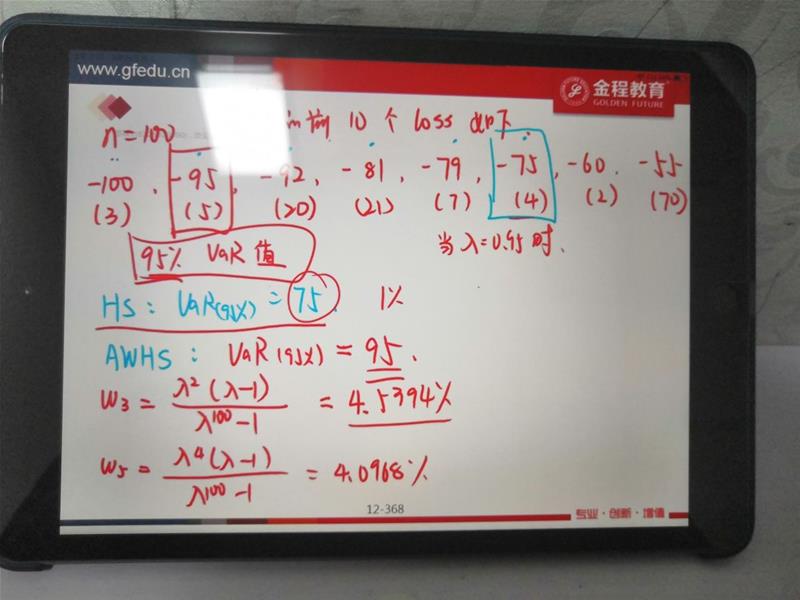 www.gfedu.cn
金程教育
GOLDEN FUTURE
n=100 前 10 个 loss 如下
-100, -95, -92, -81, -79, -75, -60, -55
(3) (5) (20) (21) (7) (4) (2) (70)
95% VaR 值
当 λ=0.95 时.
HS: VaR(95%) = 75. 1%
AWHS: VaR(95%) = 95.
w3 = λ²(λ-1) / λ¹⁰⁰-1 = 4.5394%
w5 = λ⁴(λ-1) / λ¹⁰⁰-1 = 4.0968%
12-368
专业·创新·增值